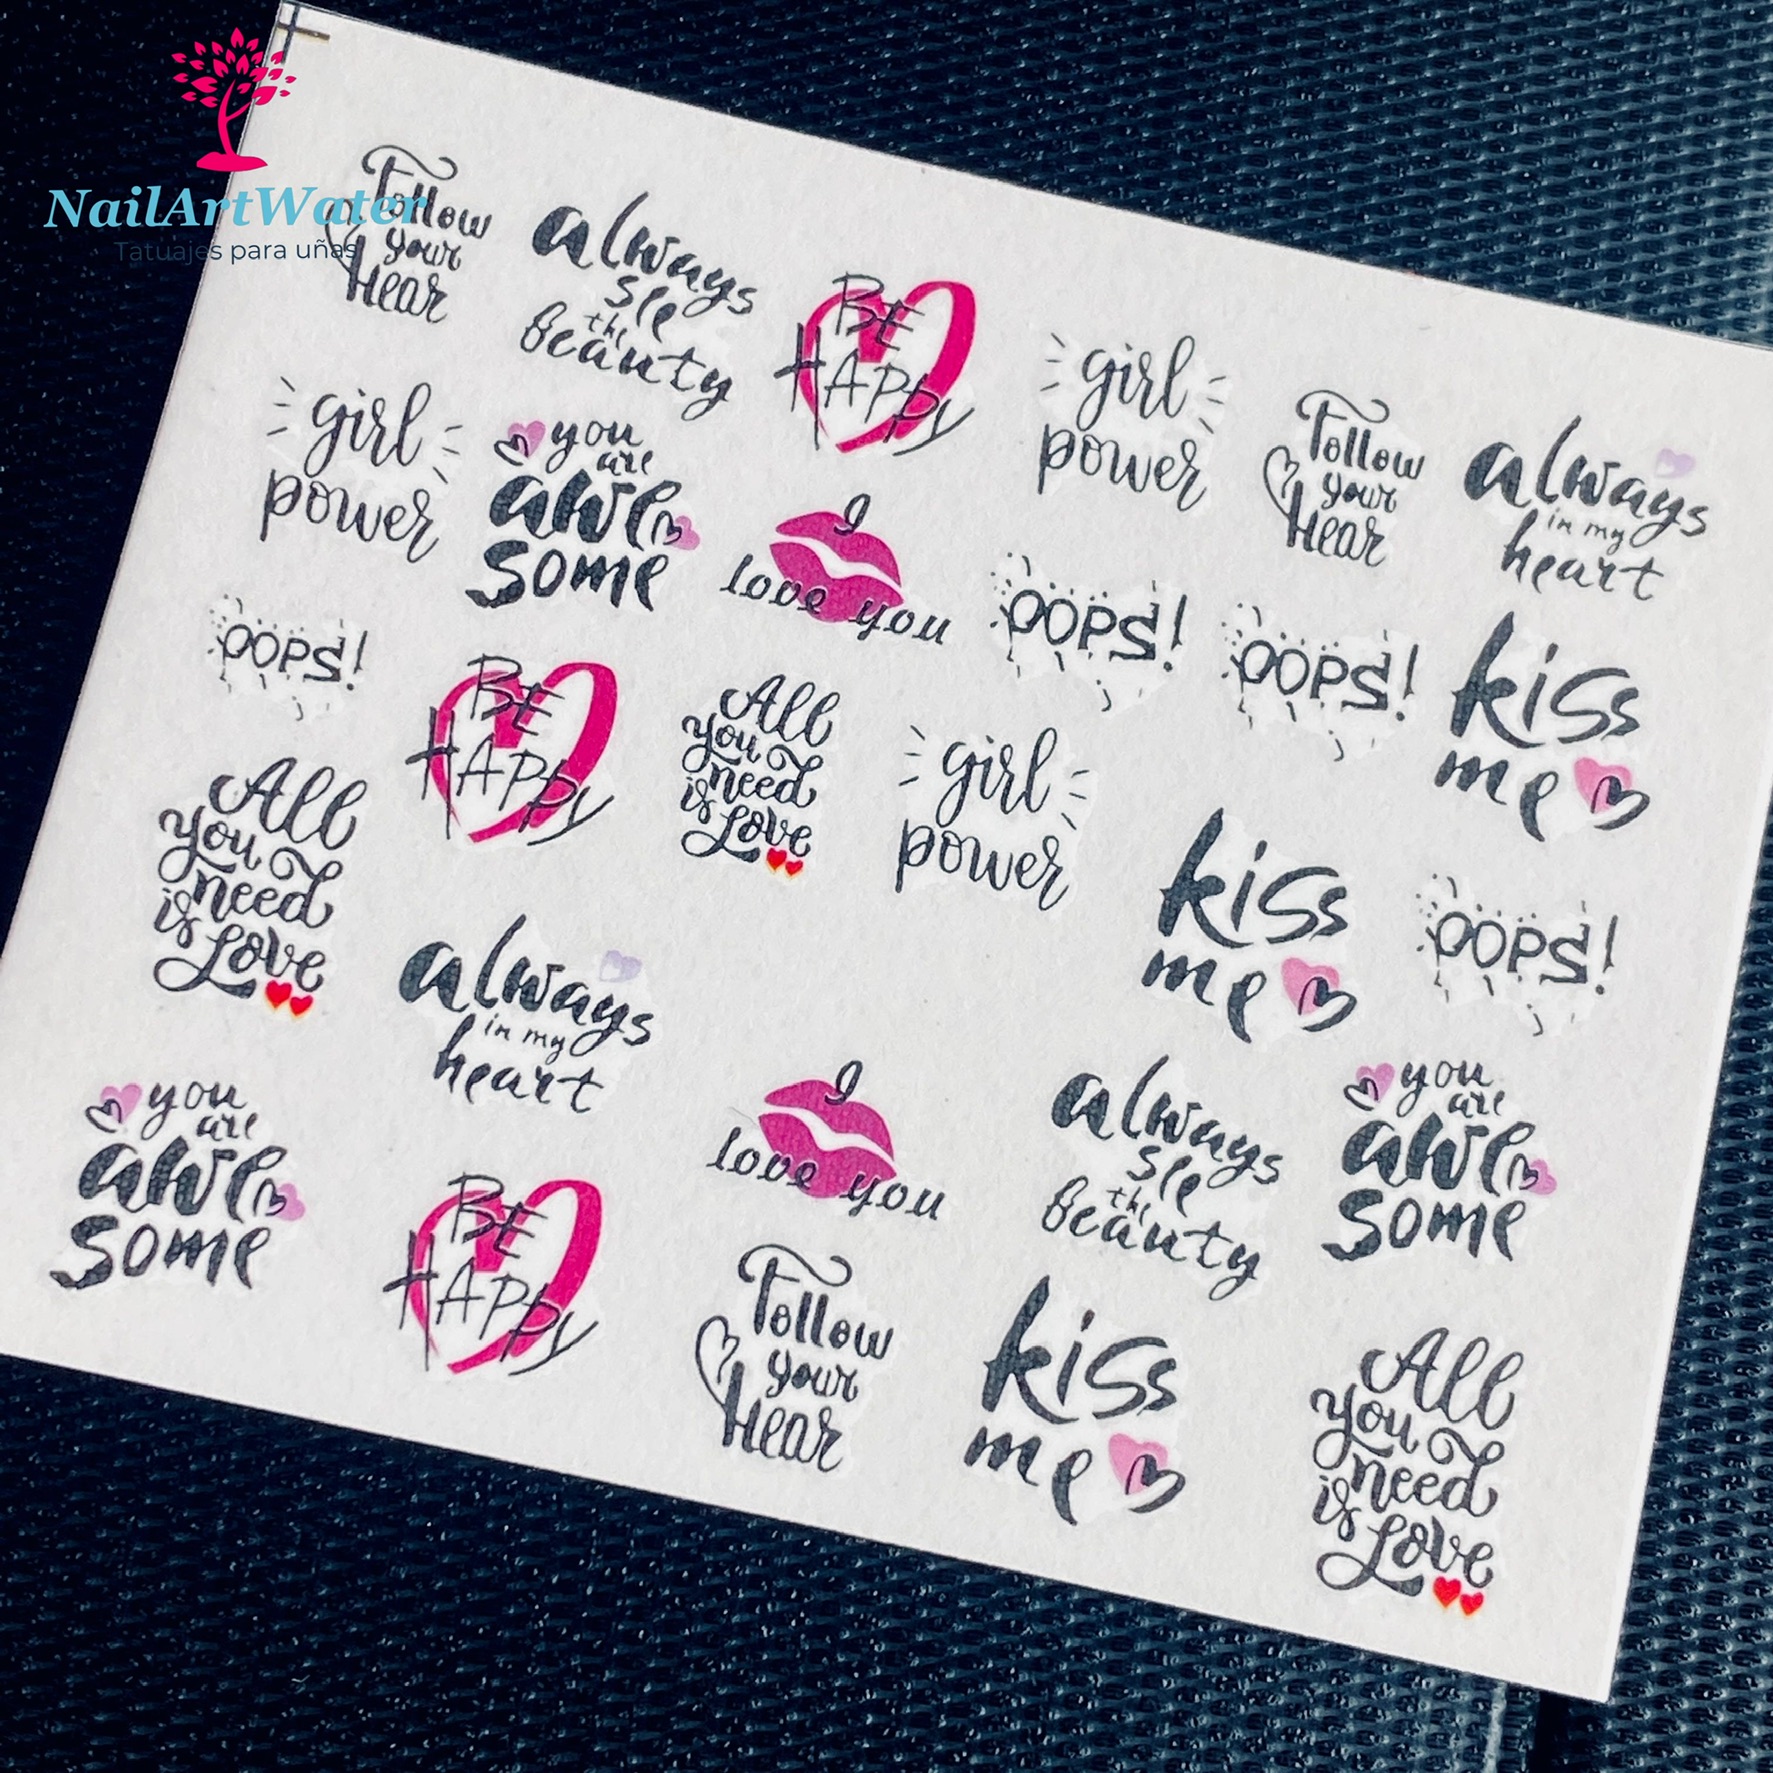 NailArtWater
Tatuajes para uñas
Follow
your
Hear
always
see
the
beauty
BE
HAPPY
girl
power
Follow
your
Hear
always
in my
heart
girl
power
you
are
awe
some
I
love you
OOPS!
OOPS!
kiss
me
OOPS!
BE
HAPPY
All
you
need
is
Love
girl
power
kiss
me
OOPS!
All
you
need
is
Love
always
in my
heart
I
love you
always
see
the
beauty
you
are
awe
some
you
are
awe
some
BE
HAPPY
Follow
your
Hear
kiss
me
All
you
need
is
Love